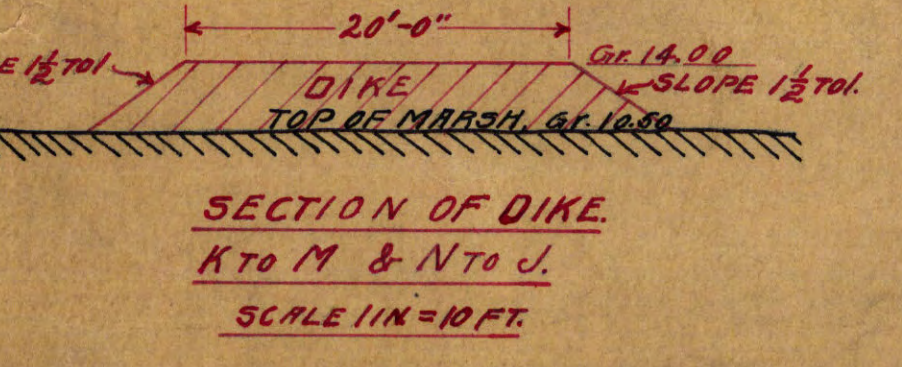 20'-0"
E 1½ TO 1
Gr. 14.00
SLOPE 1½ TO 1.
DIKE
TOP OF MARSH. Gr. 10.50
SECTION OF DIKE.
K TO M & N TO J.
SCALE 1 IN = 10 FT.